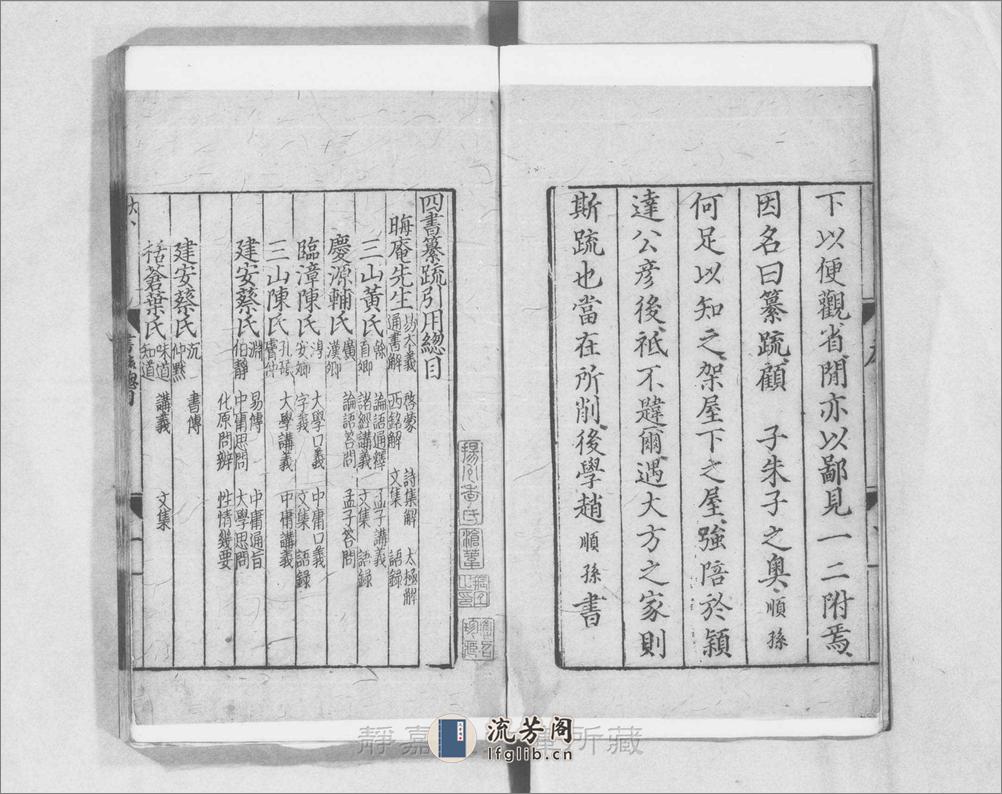 下以便觀省閒亦以鄙見一二附焉
因名曰纂疏顧　子朱子之奧順孫
何足以知之架屋下之屋強陪於穎
達公彥後祗不韙爾遇大方之家則
斯疏也當在所削後學趙順孫書
四書纂疏引用總目
晦庵先生 易本義 啓蒙 詩集解 太極解
通書解 西銘解 文集 語錄
三山黃氏 榦 論語通釋 孟子講義
直卿 諸經講義 文集 語錄
慶源輔氏 廣 漢卿 論語答問 孟子答問
臨漳陳氏 淳 大學口義 中庸口義
安卿 字義 文集 語錄
三山陳氏 孔碩 膚仲 大學講義 中庸講義
建安蔡氏 淵 易傳 中庸通旨
伯靜 中庸思問 大學思問
化原問辨 性情幾要
建安蔡氏 沉 仲默 書傳
括蒼葉氏 味道 知道 講義 文集
靜嘉
所藏
流芳阁
lfglib.cn